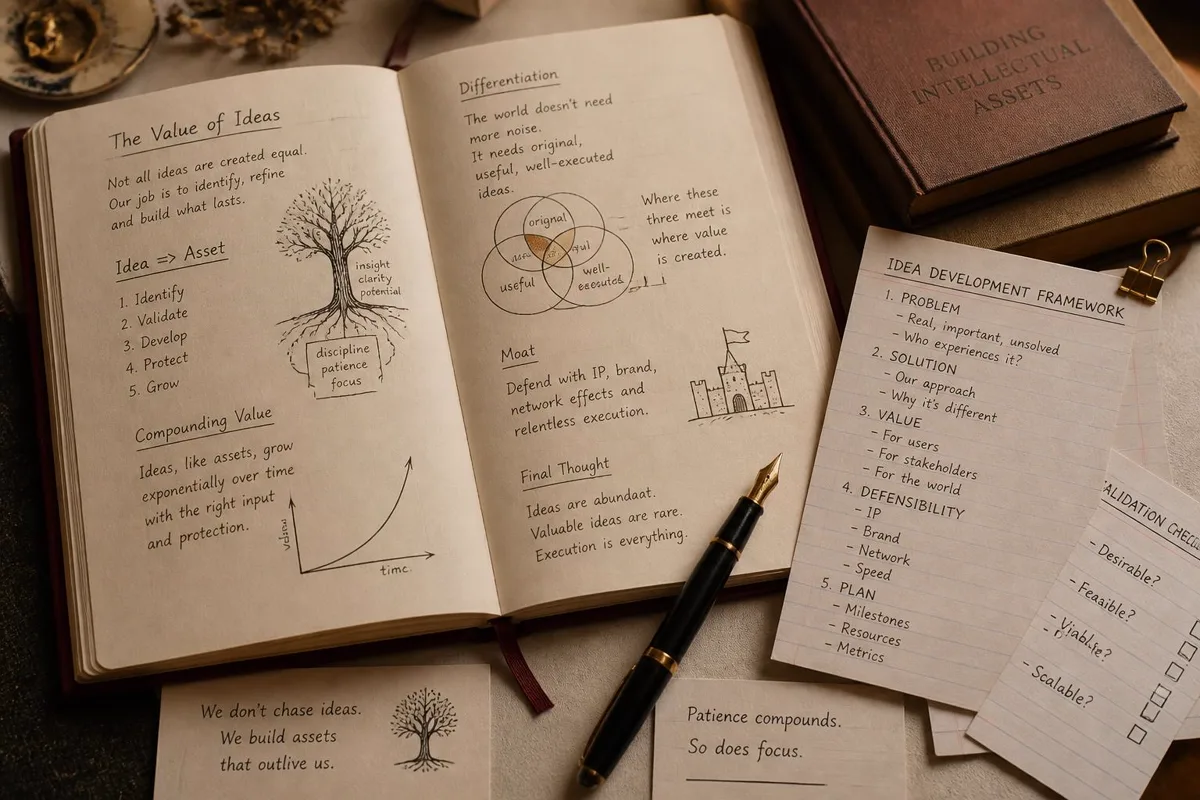 The Value of Ideas
Not all ideas are created equal.
Our job is to identify, refine
and build what lasts.
Idea => Asset
1. Identify
2. Validate
3. Develop
4. Protect
5. Grow
insight
clarity
potential
discipline
patience
focus
Compounding Value
Ideas, like assets, grow
exponentially over time
with the right input
and protection.
time.
Differentiation
The world doesn't need
more noise.
It needs original,
useful, well-executed
ideas.
orignal
useful
well-
Where these
three meet is
where value
is created.
Moat
Defend with IP, brand,
network effects and
relentless execution.
Final Thought
Ideas are abundaat.
Valuable ideas are rare.
Execution is everything.
BUILDING
INTELLECTUAL
ASSETS
IDEA DEVELOPMENT FRAMEWORK
1. PROBLEM
- Real, important, unsolved
- Who experiences it?
2. SOLUTION
- Our approach
- Why it's different
3. VALUE
- For users
- For stakeholders
- For the world
4. DEFENSIBILITY
- IP
- Brand
- Network
- Speed
5. PLAN
- Milestones
- Resources
- Metrics
ALIDATION
- Desirable?
- Feasible?
- Scalable?
We don't chase ideas.
We build assets
that outlive us.
Patience compounds.
So does focus.